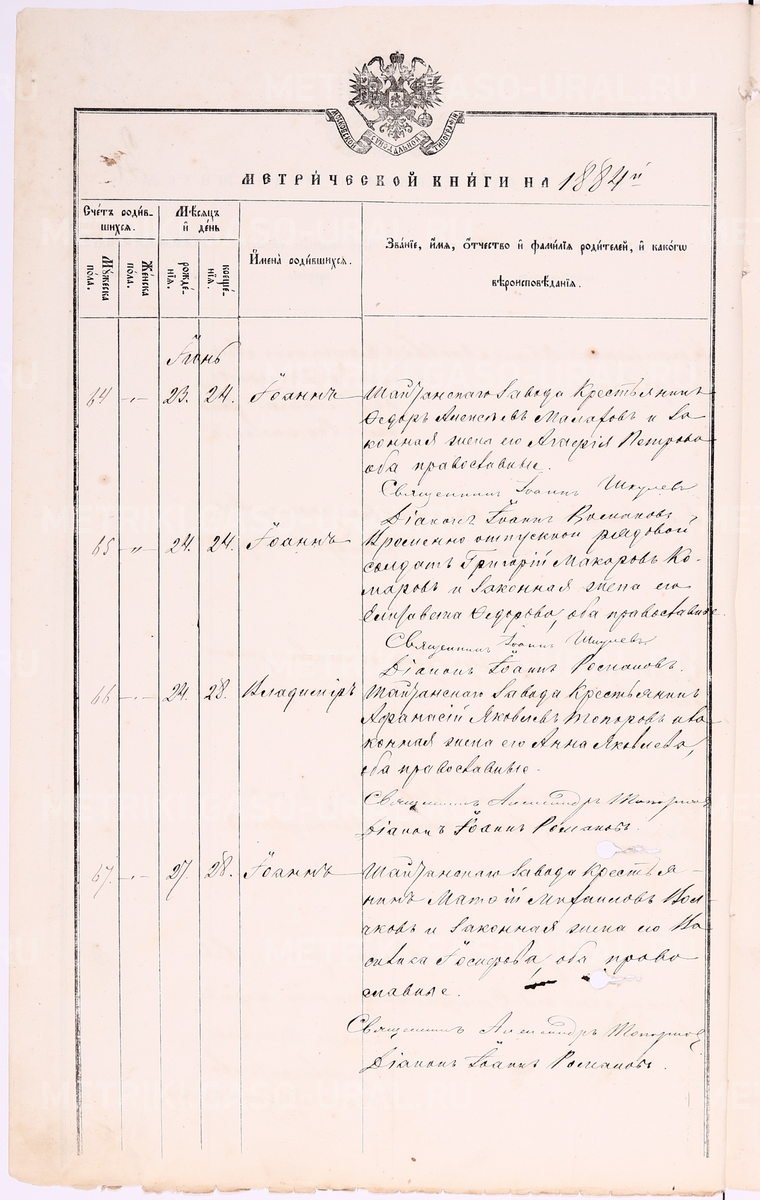 МОСКОВСКОЙ СѴНОДАЛЬНОЙ ТИПОГРАФІИ
МЕТРИ́ЧЕСКОЙ КНИ́ГИ НА 1884й
Сче́тъ роди́в-
шихся.
Мѣ́сяцъ
и де́нь
Имена̀ роди́вшихся.
Зва́нїе, и́мя, о́тчество и фами́лїя роди́телей, и како́гѡ
вѣроисповѣ́данїя.
Му́жеска
по́ла.
Же́нска
по́ла.
рожде́-
нїя.
креще́-
нїя.
Іюнь
64 -"- 23. 24. Іоаннъ Шайтанскаго Завода Крестьянинъ
Ѳедоръ Алексѣевъ Малаховъ и за-
конная жена его Агафія Петрова
оба православные.
Священникъ Іоаннъ
Діаконъ Іоаннъ Романовъ
65 " 24. 24. Іоаннъ Временно отпускной рядовой
солдатъ Григорій Макаровъ Ко-
маровъ и законная жена его
Елизавета Ѳедорова, оба православные.
Священникъ Іоаннъ
Діаконъ Іоаннъ Романовъ.
66 -"- 24. 28. Владиміръ Шайтанскаго Завода Крестьянинъ
Афанасій Яковлевъ Топоровъ и за-
конная жена его Анна Яковлева,
оба православные.
Священникъ Александръ Топорковъ
Діаконъ Іоаннъ Романовъ.
67. -"- 27. 28. Іоаннъ Шайтанскаго Завода Крестья-
нинъ Матѳій Михаиловъ
и законная жена его Ва-
силиса Іосифова, оба право
славные.
Священникъ Александръ Топорковъ
Діаконъ Іоаннъ Романовъ.
METRIKI.GASO-URAL.RU